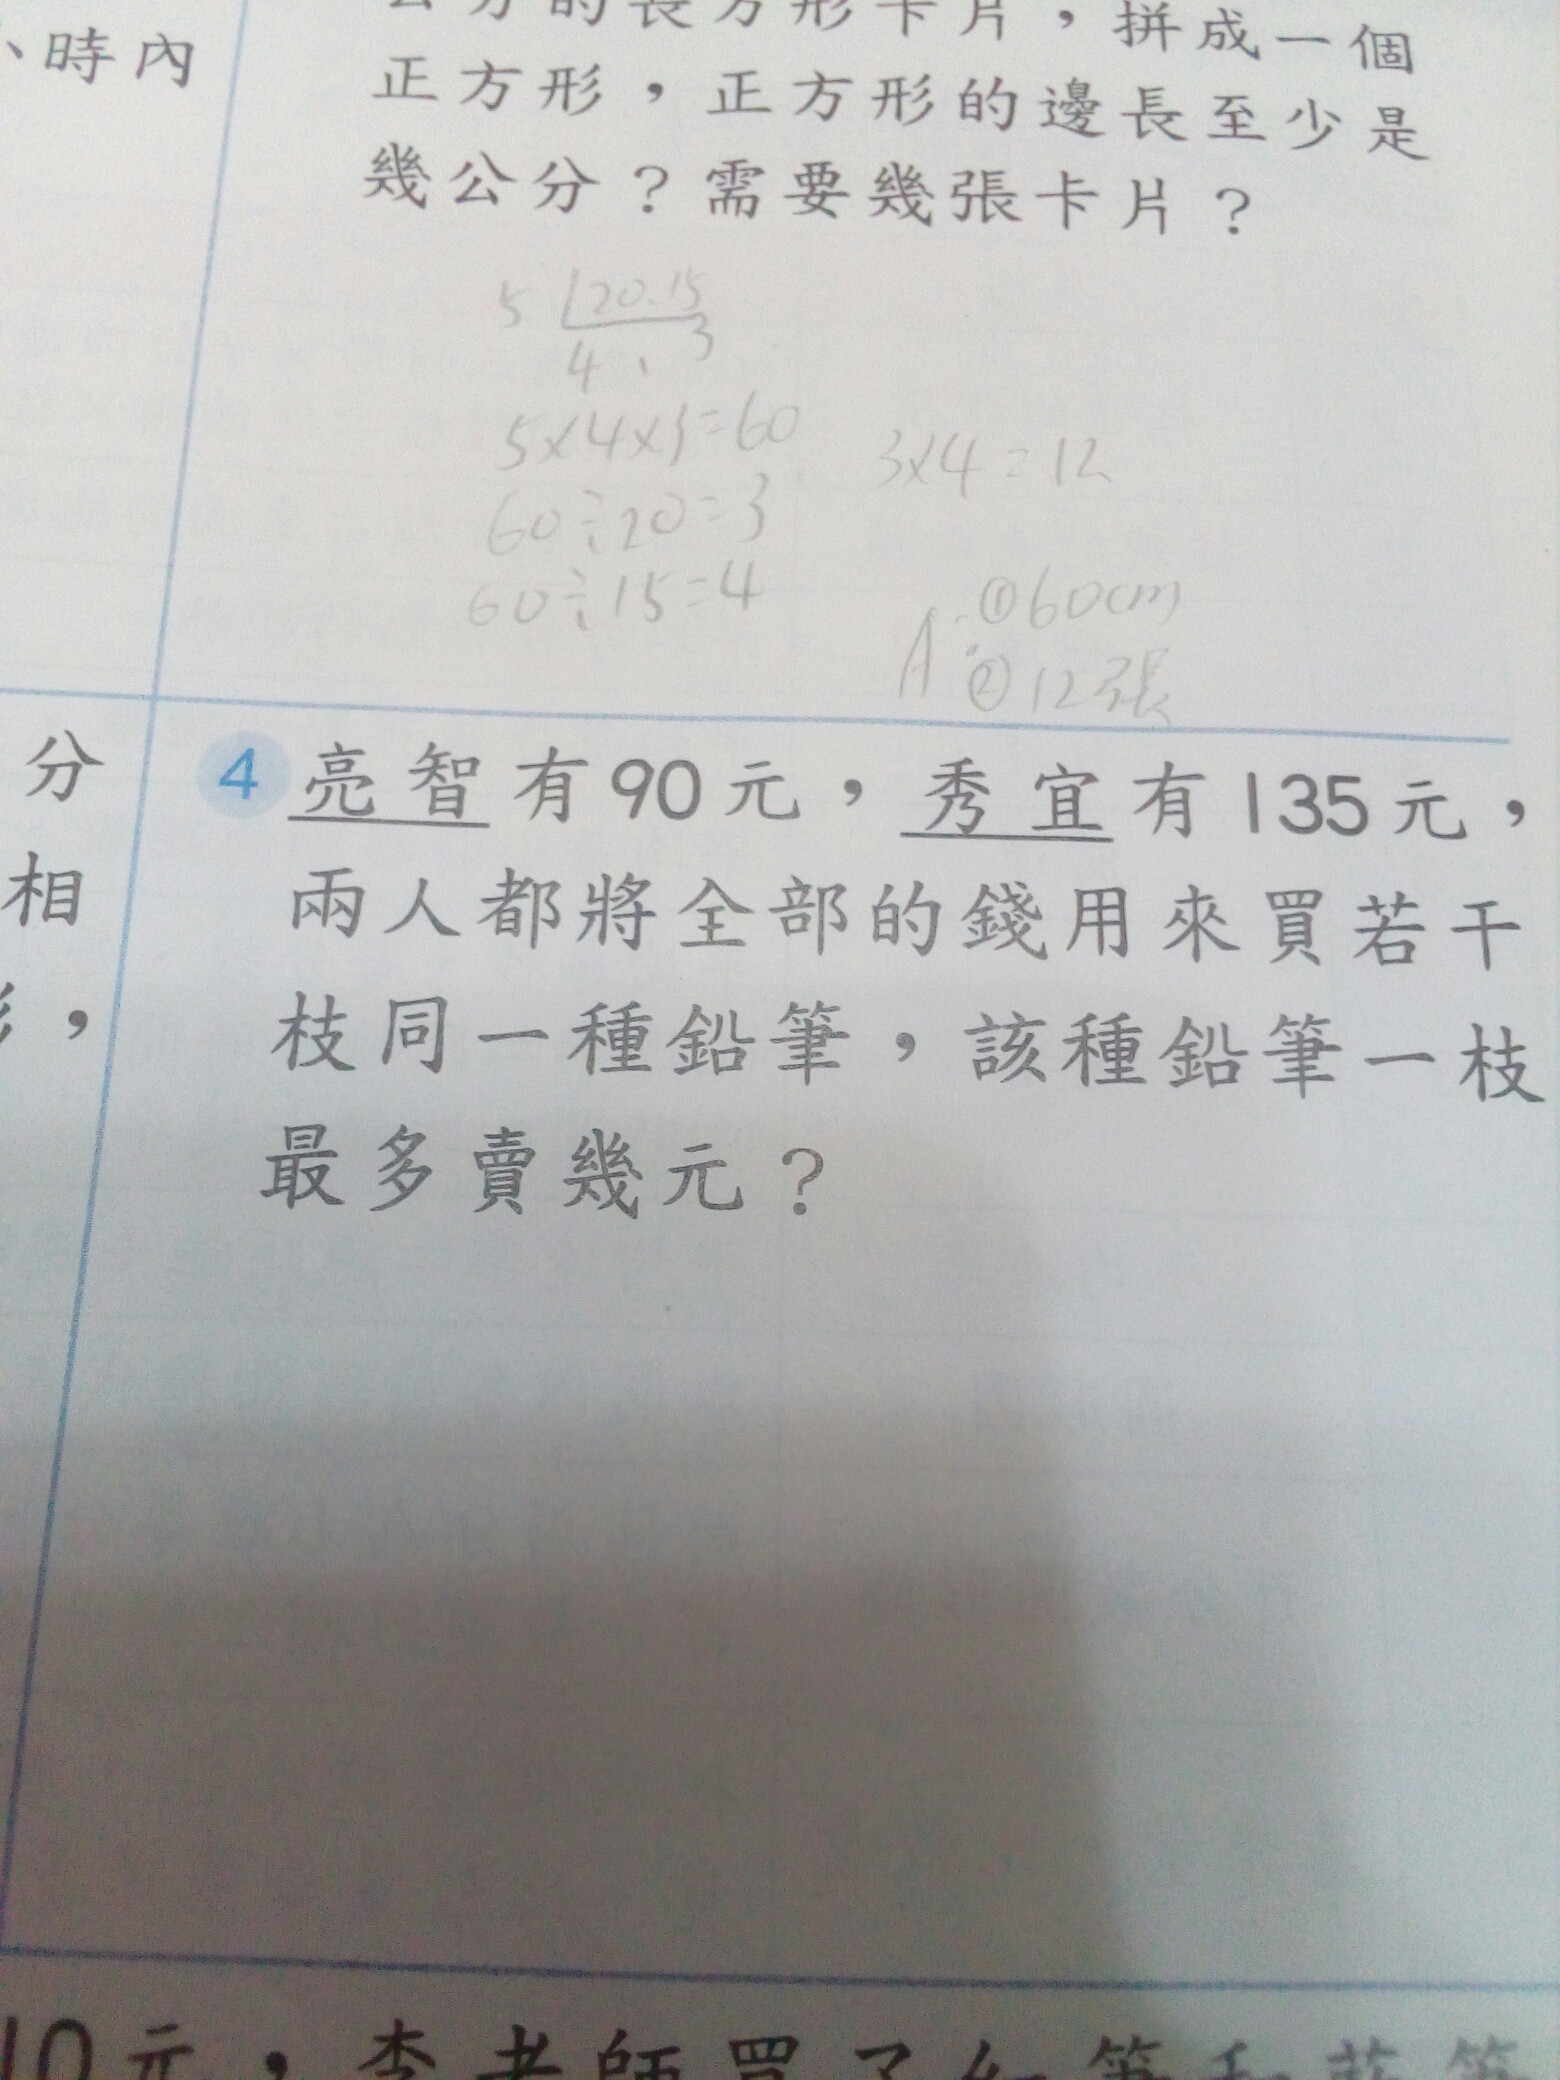 、時內
公分的長方形卡片，拼成一個
正方形，正方形的邊長至少是
幾公分？需要幾張卡片？
5 20.15
4 、 3
5×4×3=60
3×4=12
60÷20=3
60÷15=4
A:①60cm
②12張
分
相
，
4 亮智有90元，秀宜有135元，
兩人都將全部的錢用來買若干
枝同一種鉛筆，該種鉛筆一枝
最多賣幾元？
10元，李老師買了紅筆和藍筆